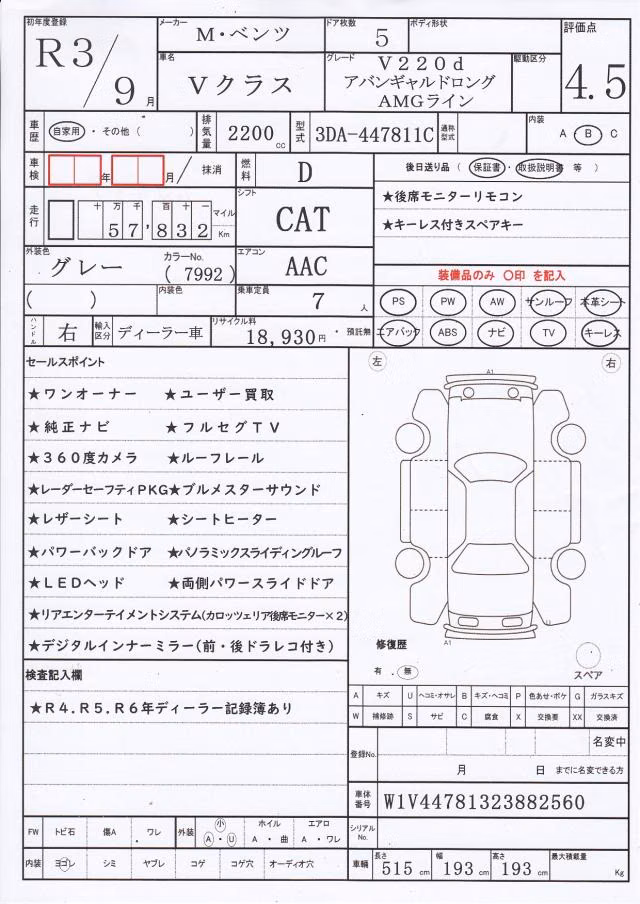 初年度登録 メーカー M・ベンツ ドア枚数 5 ボディ形状 評価点
R3/9月 車名 Vクラス グレード V220d アバンギャルドロング AMGライン 駆動区分 4.5
車歴 自家用・その他( ) 排気量 2200cc 型式 3DA-447811C 通称型式 内装 A・B・C
車検 年 月 抹消 燃料 D 後日送り品(保証書・取扱説明書 等)
走行 十万千百十一 57,832 マイル Km シフト CAT ★後席モニターリモコン
★キーレス付きスペアキー
外装色 グレー カラーNo. (7992) エアコン AAC 装備品のみ 〇印 を記入
( ) 内装色 乗車定員 7人 PS PW AW サンルーフ 本革シート
ハンドル 右 輸入区分 ディーラー車 リサイクル料 18,930円・預託無 エアバック ABS ナビ TV キーレス
セールスポイント 左 右
A1
★ワンオーナー ★ユーザー買取
★純正ナビ ★フルセグTV
★360度カメラ ★ルーフレール
★レーダーセーフティPKG★ブルメスターサウンド
★レザーシート ★シートヒーター
★パワーバックドア ★パノラミックスライディングルーフ
★LEDヘッド ★両側パワースライドドア
★リアエンターテイメントシステム(カロッツェリア後席モニター×2)
U
★デジタルインナーミラー(前・後ドラレコ付き)
A1
修復歴
有.無 スペア
検査記入欄
★R4.R5.R6年ディーラー記録簿あり
A キズ U ヘコミ・オサレ B キズ・ヘコミ P 色あせ・ボケ G ガラスキズ
W 補修跡 S サビ C 腐食 X 交換要 XX 交換済
登録No. 名変中
月 日 までに名変できる方
車体番号 W1V44781323882560
FW トビ石 傷A .ワレ 外装 小 A・U ホイル A・曲 エアロ A・ワレ シリアルNo.
内装 ヨゴレ シミ ヤブレ コゲ コゲ穴 オーディオ穴 車輌 長さ 515cm 幅 193cm 高さ 193cm 最大積載量 Kg